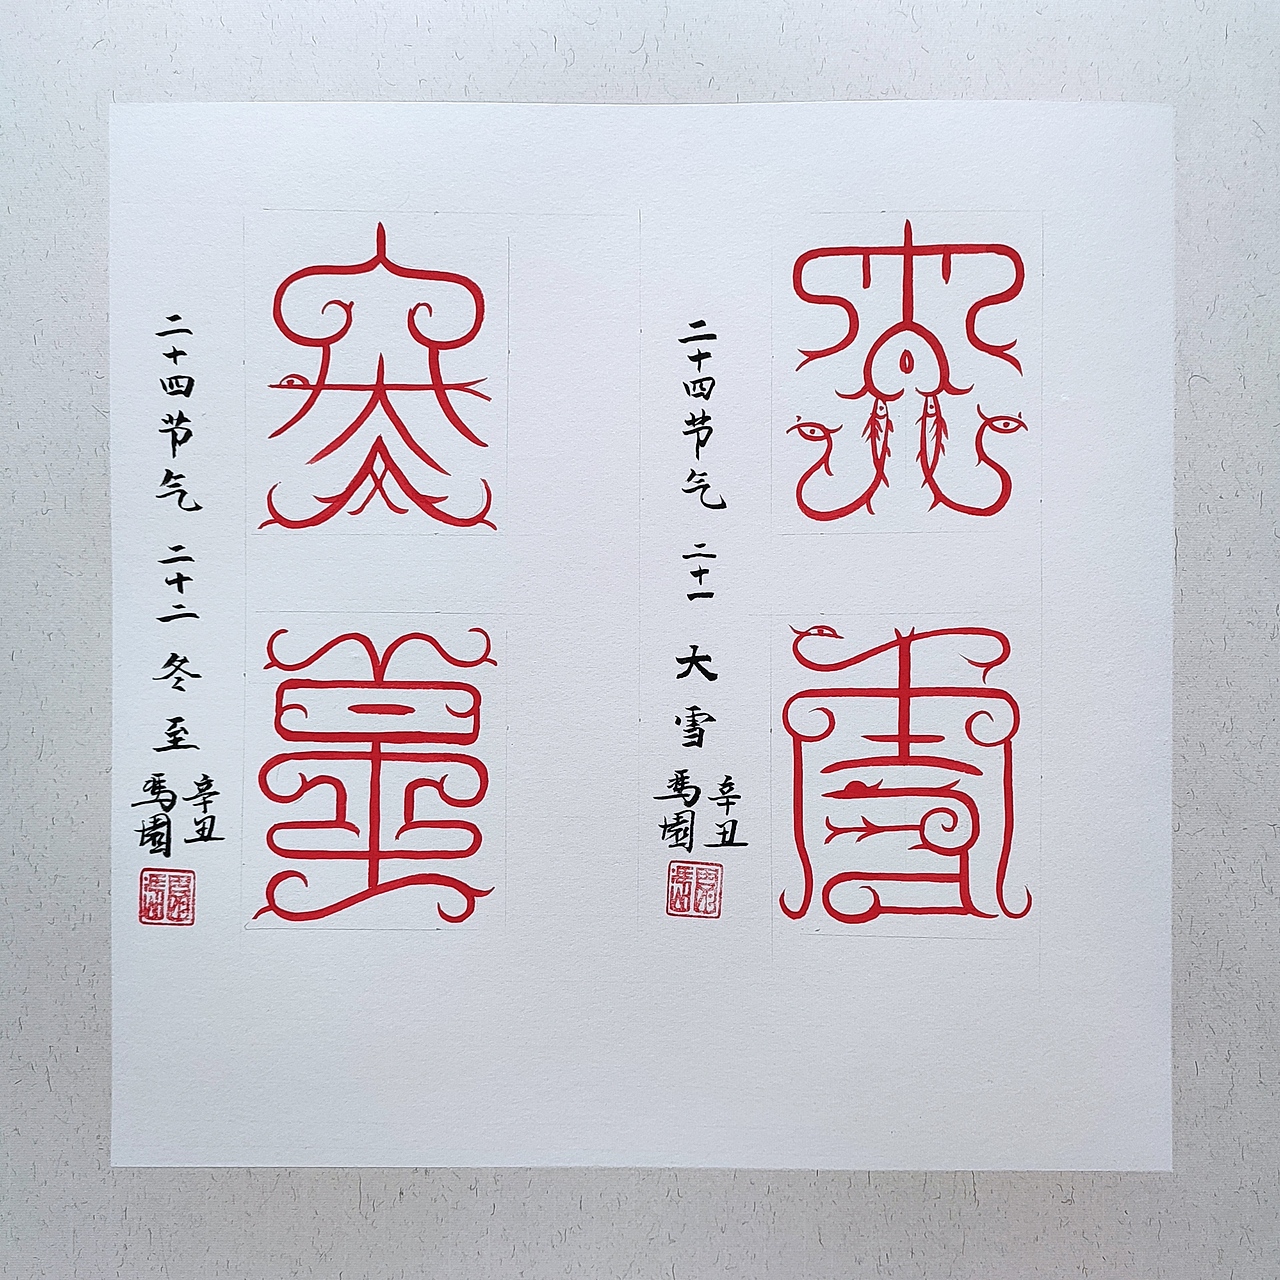 大雪
二十四节气 二十一 大雪
辛丑
馬園
冬至
二十四节气 二十二 冬至
辛丑
馬園